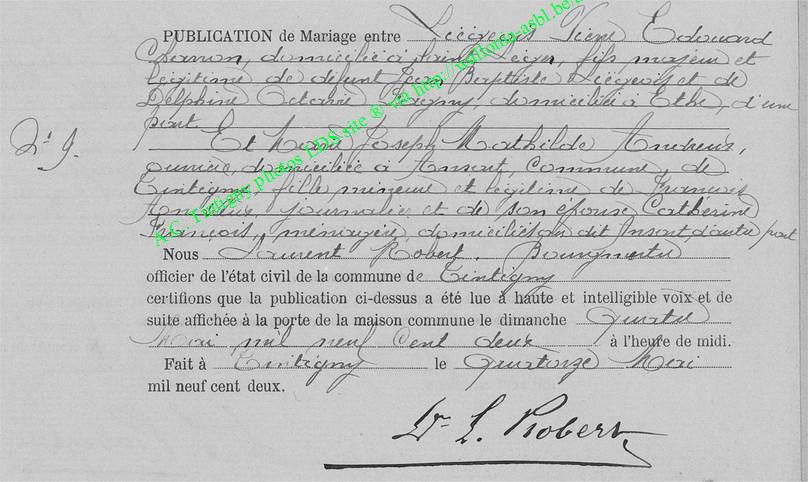 PUBLICATION de Mariage entre Liégeois Edouard
domicilié à Saint Léger, fils majeur et
légitime de défunt Jean Baptiste Liégeois et de
Delphine Octavie domiciliée à Ethe, d'une
part
N° 9. Et Marie Joseph Mathilde Andreux,
ouvrière, domiciliée à Ansart, Commune de
Tintigny, fille mineure et légitime de François
Andreux, journalier et de son épouse Catherine
François, ménagère, domiciliés au dit Ansart, d'autre part
Nous Laurent Robert, Bourgmestre
officier de l'état civil de la commune de Tintigny
certifions que la publication ci-dessus a été lue à haute et intelligible voix et de
suite affichée à la porte de la maison commune le dimanche Quatre
Mai mil neuf cent deux à l'heure de midi.
Fait à Tintigny le Quatorze Mai
mil neuf cent deux.
Dr L. Robert
A.C. Tintigny photos LDS site ® via http://wallonia-asbl.be/